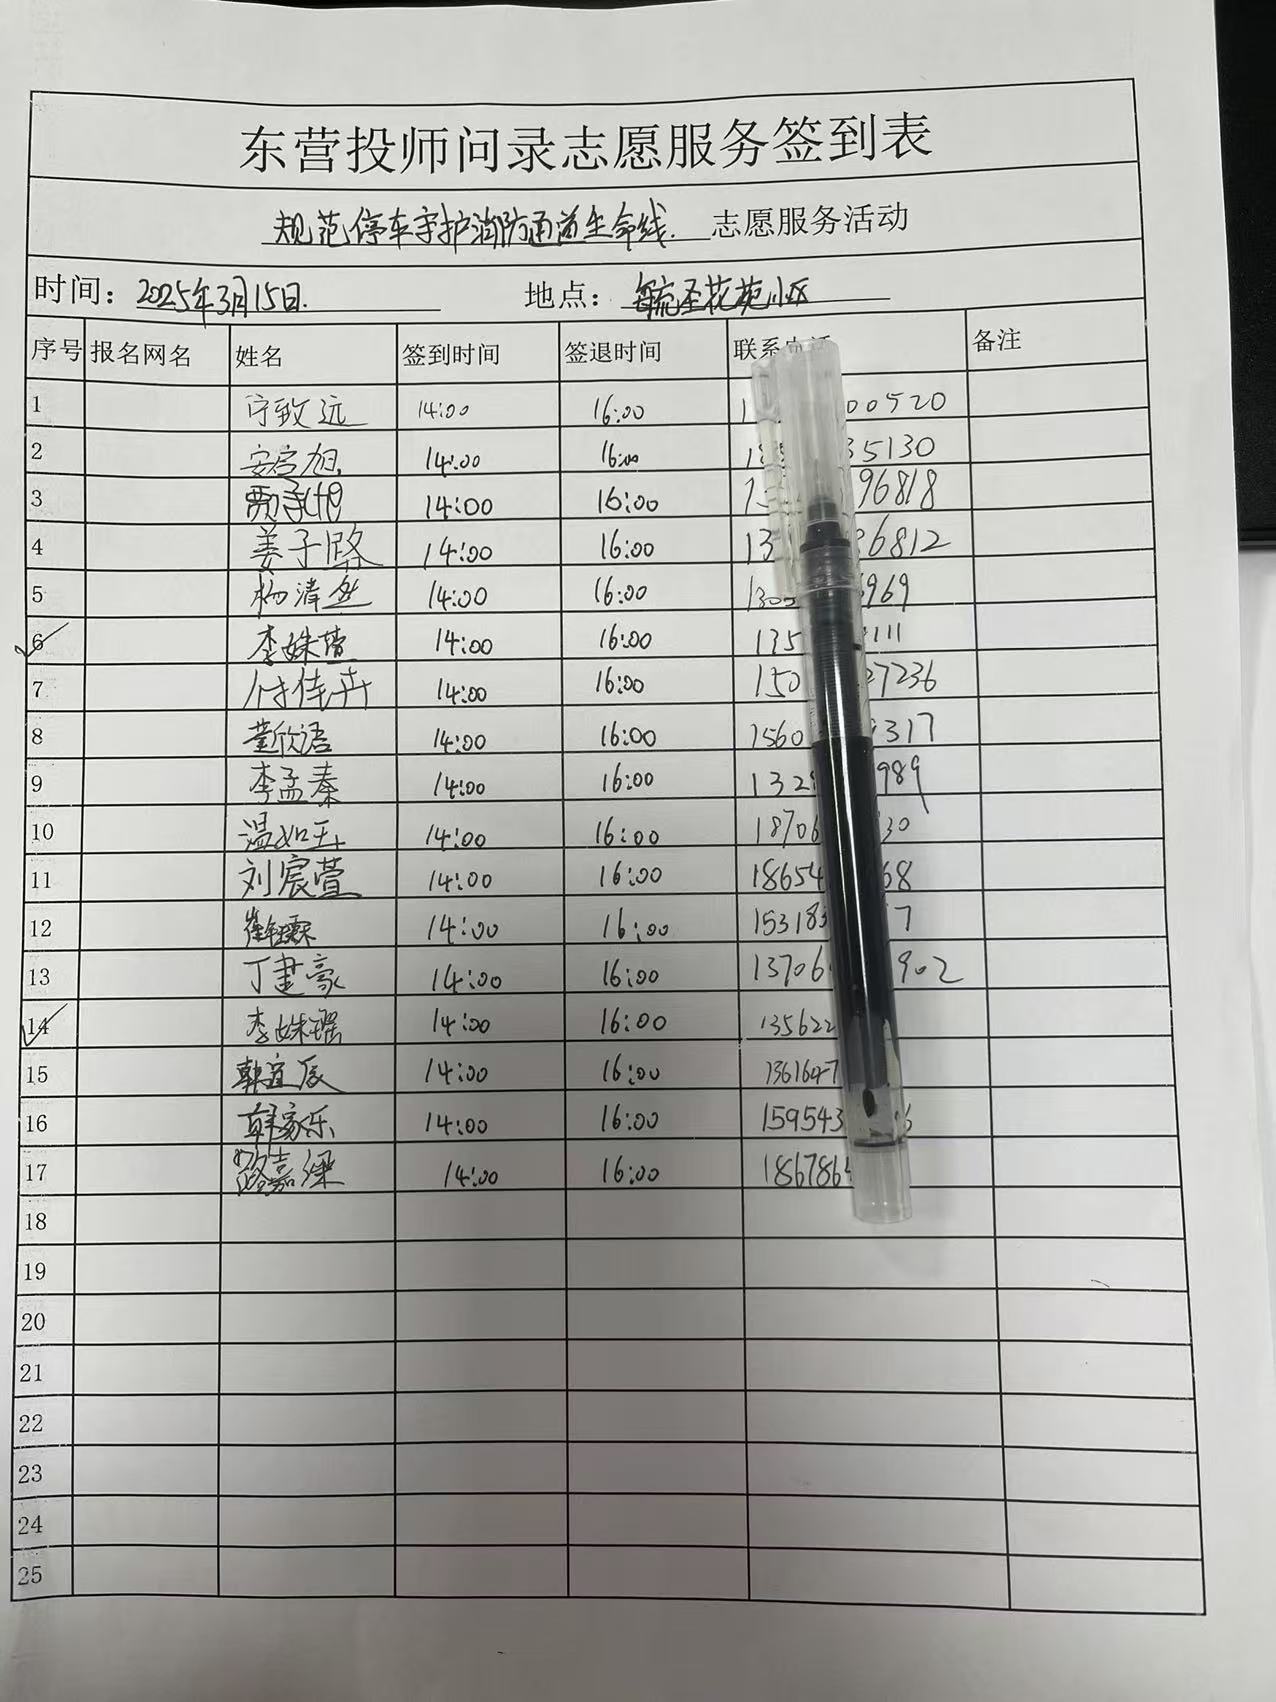 东营投师问录志愿服务签到表
规范停车守护消防通道生命线. 志愿服务活动
时间：2025年3月15日. 地点：花苑小区
序号 报名网名 姓名 签到时间 签退时间 联系电话 备注
1 宁致远 14:00 16:00 1 00520
2 安启旭 14:00 16:00 35130
3 贾 14:00 16:00 96818
4 姜子璐 14:00 16:00 13 6812
5 杨清然 14:00 16:00 130 969
6 李姝萱 14:00 16:00 135 111
7 付佳卉 14:00 16:00 150 7236
8 董欣语 14:00 16:00 1560 317
9 李孟秦 14:00 16:00 132 989
10 温如玉 14:00 16:00 18706 30
11 刘宸萱 14:00 16:00 18654 68
12 崔钰霖 14:00 16:00 15318 7
13 丁建豪 14:00 16:00 13706 902
14 李姝瑶 14:00 16:00 135622
15 韩宜辰 14:00 16:00 1361647
16 韩家乐 14:00 16:00 159543 6
17 路嘉 14:00 16:00 186786
18
19
20
21
22
23
24
25